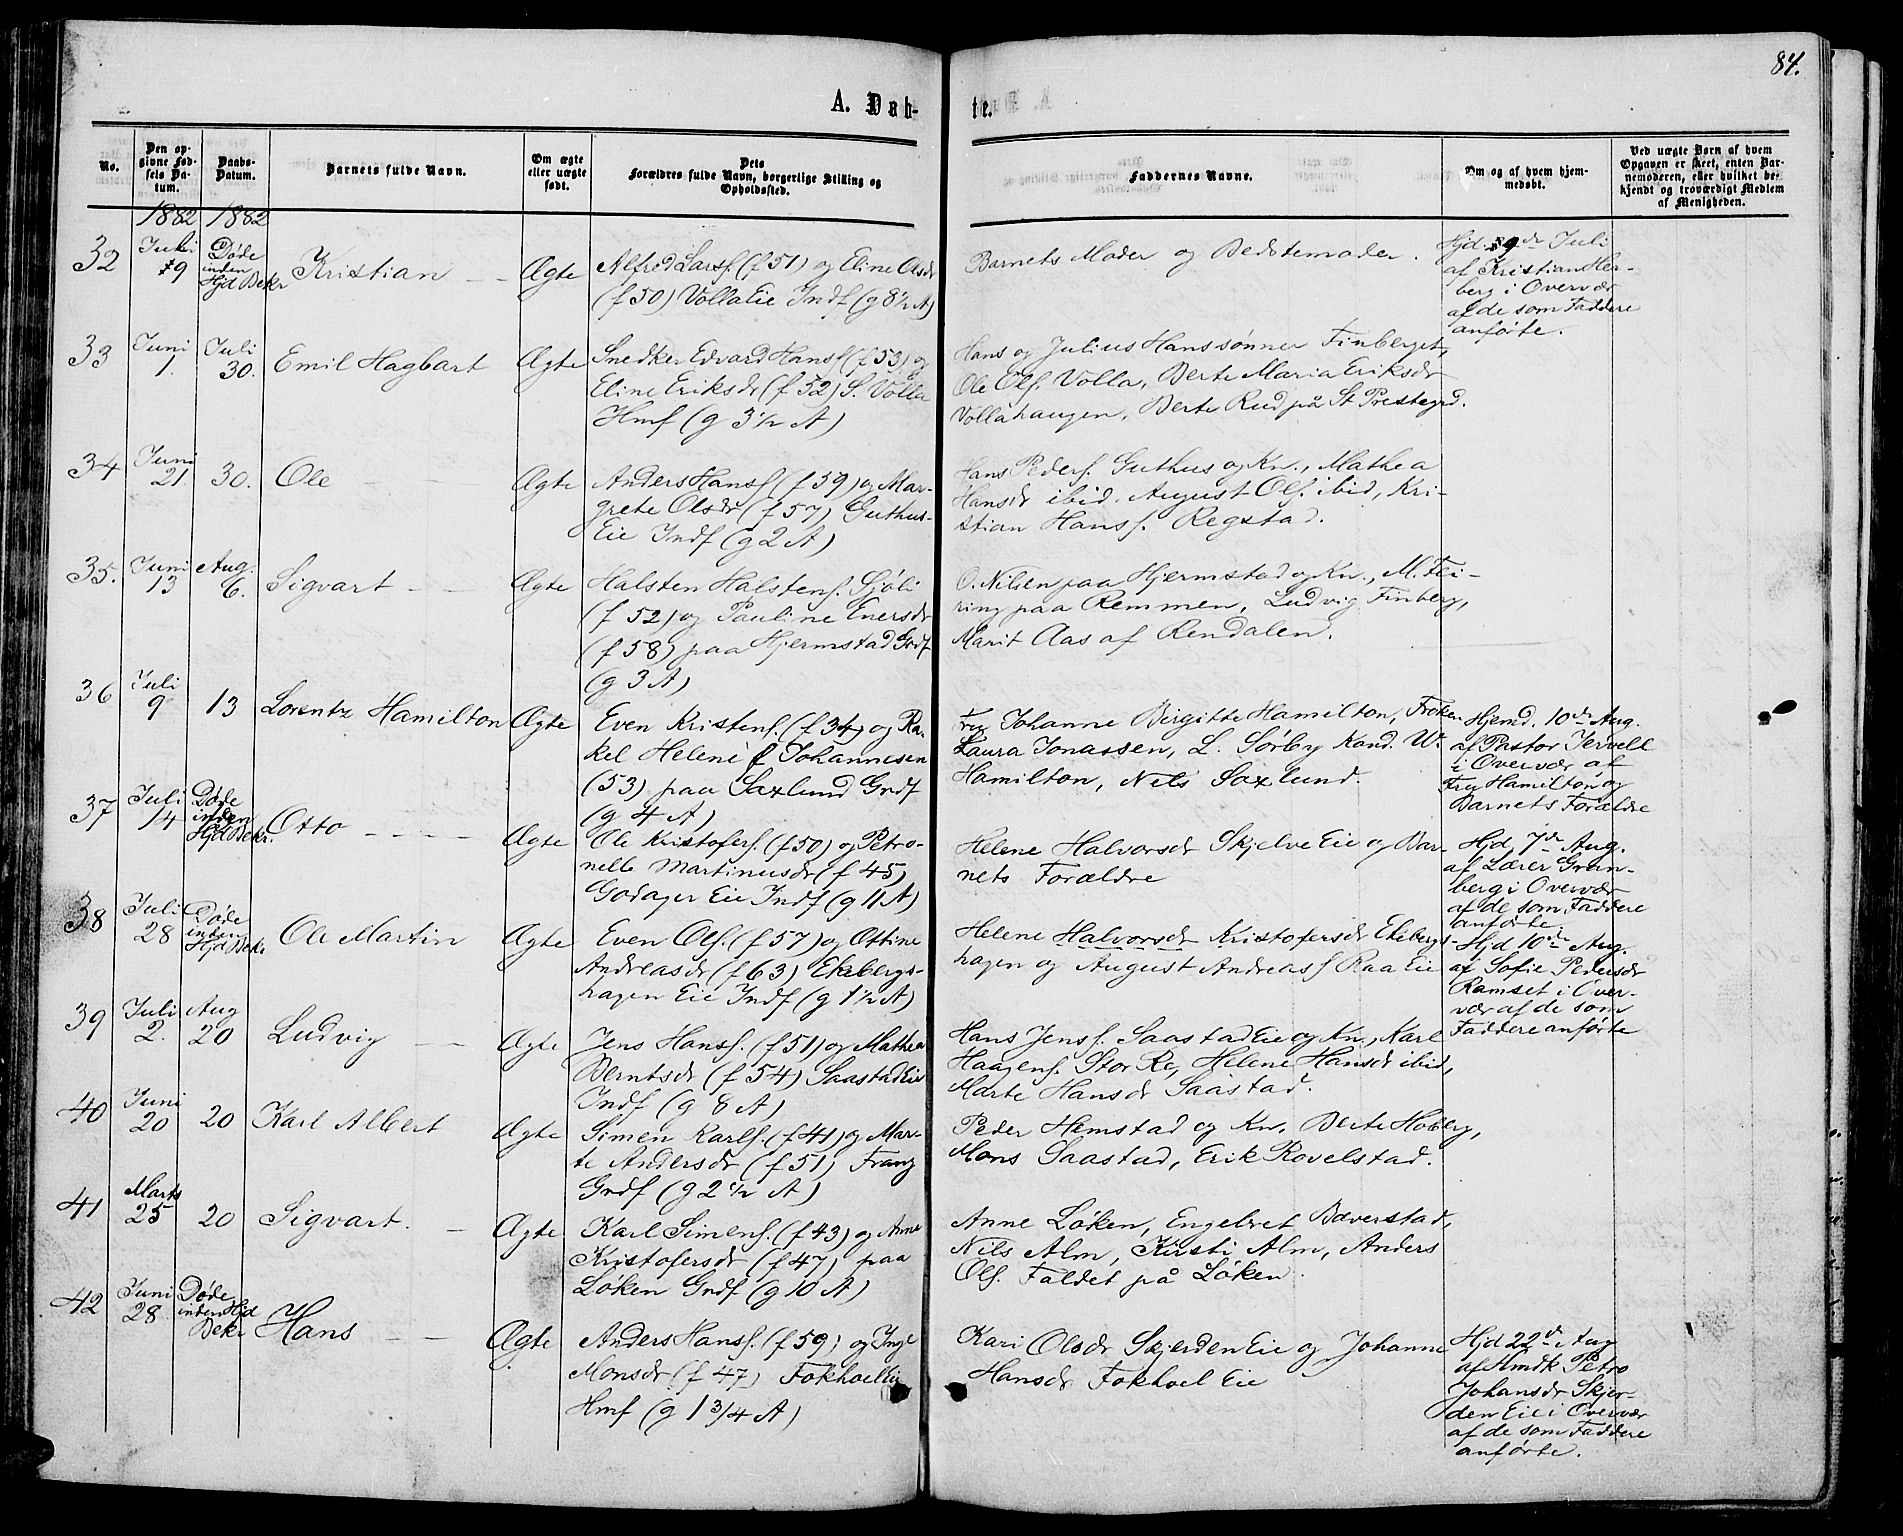 84.
A. Døb-
te.
No.
Den op-
givne Fød-
sels Da-
tum.
Daabs-
Datum.
Barnets fulde Navn.
Om ægte
eller uægte
født.
Dets
Forældres fulde Navn, borgerlige Stilling og
Opholdssted.
Faddernes Navne.
Om og af hvem hjem-
medøbt.
Ved uægte Børn af hvem
Opgaven er skeet, enten Bar-
nemoderen, eller hvilket be-
kjendt og troværdigt Medlem
af Menigheden.
1882 1882
32
Juli
9
Døde
inden
Hjd Bekr
Kristian
Ægte
Alfred Larsf. (f 51) og Eline Olsdr
(f 50) Volla Eie Indf (g 8 1/2 A)
Barnets Moder og Bedstemoder.
Hjd 9de Juli
af Kristian Her-
berg i Overvær
af de som Faddere
anførte.
33
Juni
1.
Juli
30.
Emil Hagbart
Ægte
Snedker Edvard Hansf (f 53) og
Eline Eriksdr (f 52) S. Volla
Hmf (g 3 1/2 A)
Hans og Julius Hanssønner Finberget,
Ole Olf. Volla, Berte Maria Eriksdr
Vollahaugen, Berte Rud på St Prestegrd.
34
Juni
21.
30.
Ole
Ægte
Anders Hansf (f 59) og Mar-
grete Olsdr (f 57) Guthus-
Eie Indf (g 2 A)
Hans Pedersf. Guthus og Kn., Mathea
Hansdr ibid. August Olf. ibid, Kri-
stian Hansf. Regstad.
35.
Juni
13
Aug.
6.
Sigvart
Ægte
Halsten Halstenf. Sjøli
(f 52) og Pauline Enersdr
(f 58) paa Hjermstad Grdf
(g 3 A)
O. Nilsen paa Hjermstad og Kn., M. Fei-
ring paa Remmen, Ludvig Finberg,
Marit Aas af Rendalen.
36
Juli
9
13
Lorentz Hamilton
Ægte
Even Kristenf. (f 34) og Ra-
kel Helene f Johannesen
(53) paa Saxlund Grdf
(g 4 A)
Fru Johanne Birgitte Hamilton, Frøken
Laura Jonassen, L. Sørby Kand. W.
Hamilton, Nils Saxlund.
Hjemd. 10de Aug.
af Pastor Jervell
i Overvær af
Fru Hamilton og
Barnets Forældre
37
Juli
14
Døde
inden
Hjd Bekr.
Otto
Ægte
Ole Kristoferf. (f 50) og Petro-
nelle Martinusdr (f 45)
Godager Eie Indf (g 11 A)
Helene Halvorsdr Skjelve Eie og Bar-
nets Forældre
Hjd 7de Aug.
af Lærer Gran-
berg i Overvær
af de som Faddere
anførte
38
Juli
28
Døde
inden
Hjd Bekr.
Ole Martin
Ægte
Even Olf. (f 57) og Ottine
Andreasdr (f 63) Ekebergs-
hagen Eie Indf (g 1 1/2 A)
Helene Halvorsdr Kristofersdr Ekebergs-
hagen og August Andreasf Raa Eie
Hjd 10de Aug.
af Sofie Pedersdr
Ramset i Over-
vær af de som
Faddere anførte
39
Juli
2.
Aug
20
Ludvig
Ægte
Jens Hansf. (f 51) og Mathea
Berntsdr (f 54) Saastad Eie
Indf (g 8 A)
Hans Jensf. Saastad Eie og Kn., Karl
Haagenf. Stor Re, Helene Hansdr ibid,
Marte Hansdr Saastad.
40
Juni
20
20
Karl Albert
Ægte
Simen Karlf. (f 41) og Mar-
te Andersdr (f 51) Frang
Grdf (g 2 1/2 A)
Peder Hemstad og Kn. Berte Hoberg,
Mons Saastad, Erik Rovelstad.
41
Marts
25
20
Sigvart.
Ægte
Karl Simenf. (f 43) og Anne
Kristofersdr (f 47) paa
Løken Grdf (g 10 A)
Anne Løken, Engebret Bæverstad,
Nils Alm, Kirsti Alm, Anders
Olf. Faldet på Løken.
42
Juni
28
Døde
inden Hjd
Bekr
Hans
Ægte
Anders Hansf. (f 59) og Inge
Monsdr (f 47) Fokhol Eie
Hmf (g 1 3/4 A)
Kari Olsdr Skjerden Eie og Johanne
Hansdr Fokhol Eie
Hjd 22de Aug
af Hmdk Petro
Johansdr Skjer-
den Eie i Overvær
af de som Faddere
anførte.